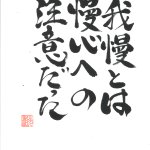 我慢とは
慢心への
注意だった